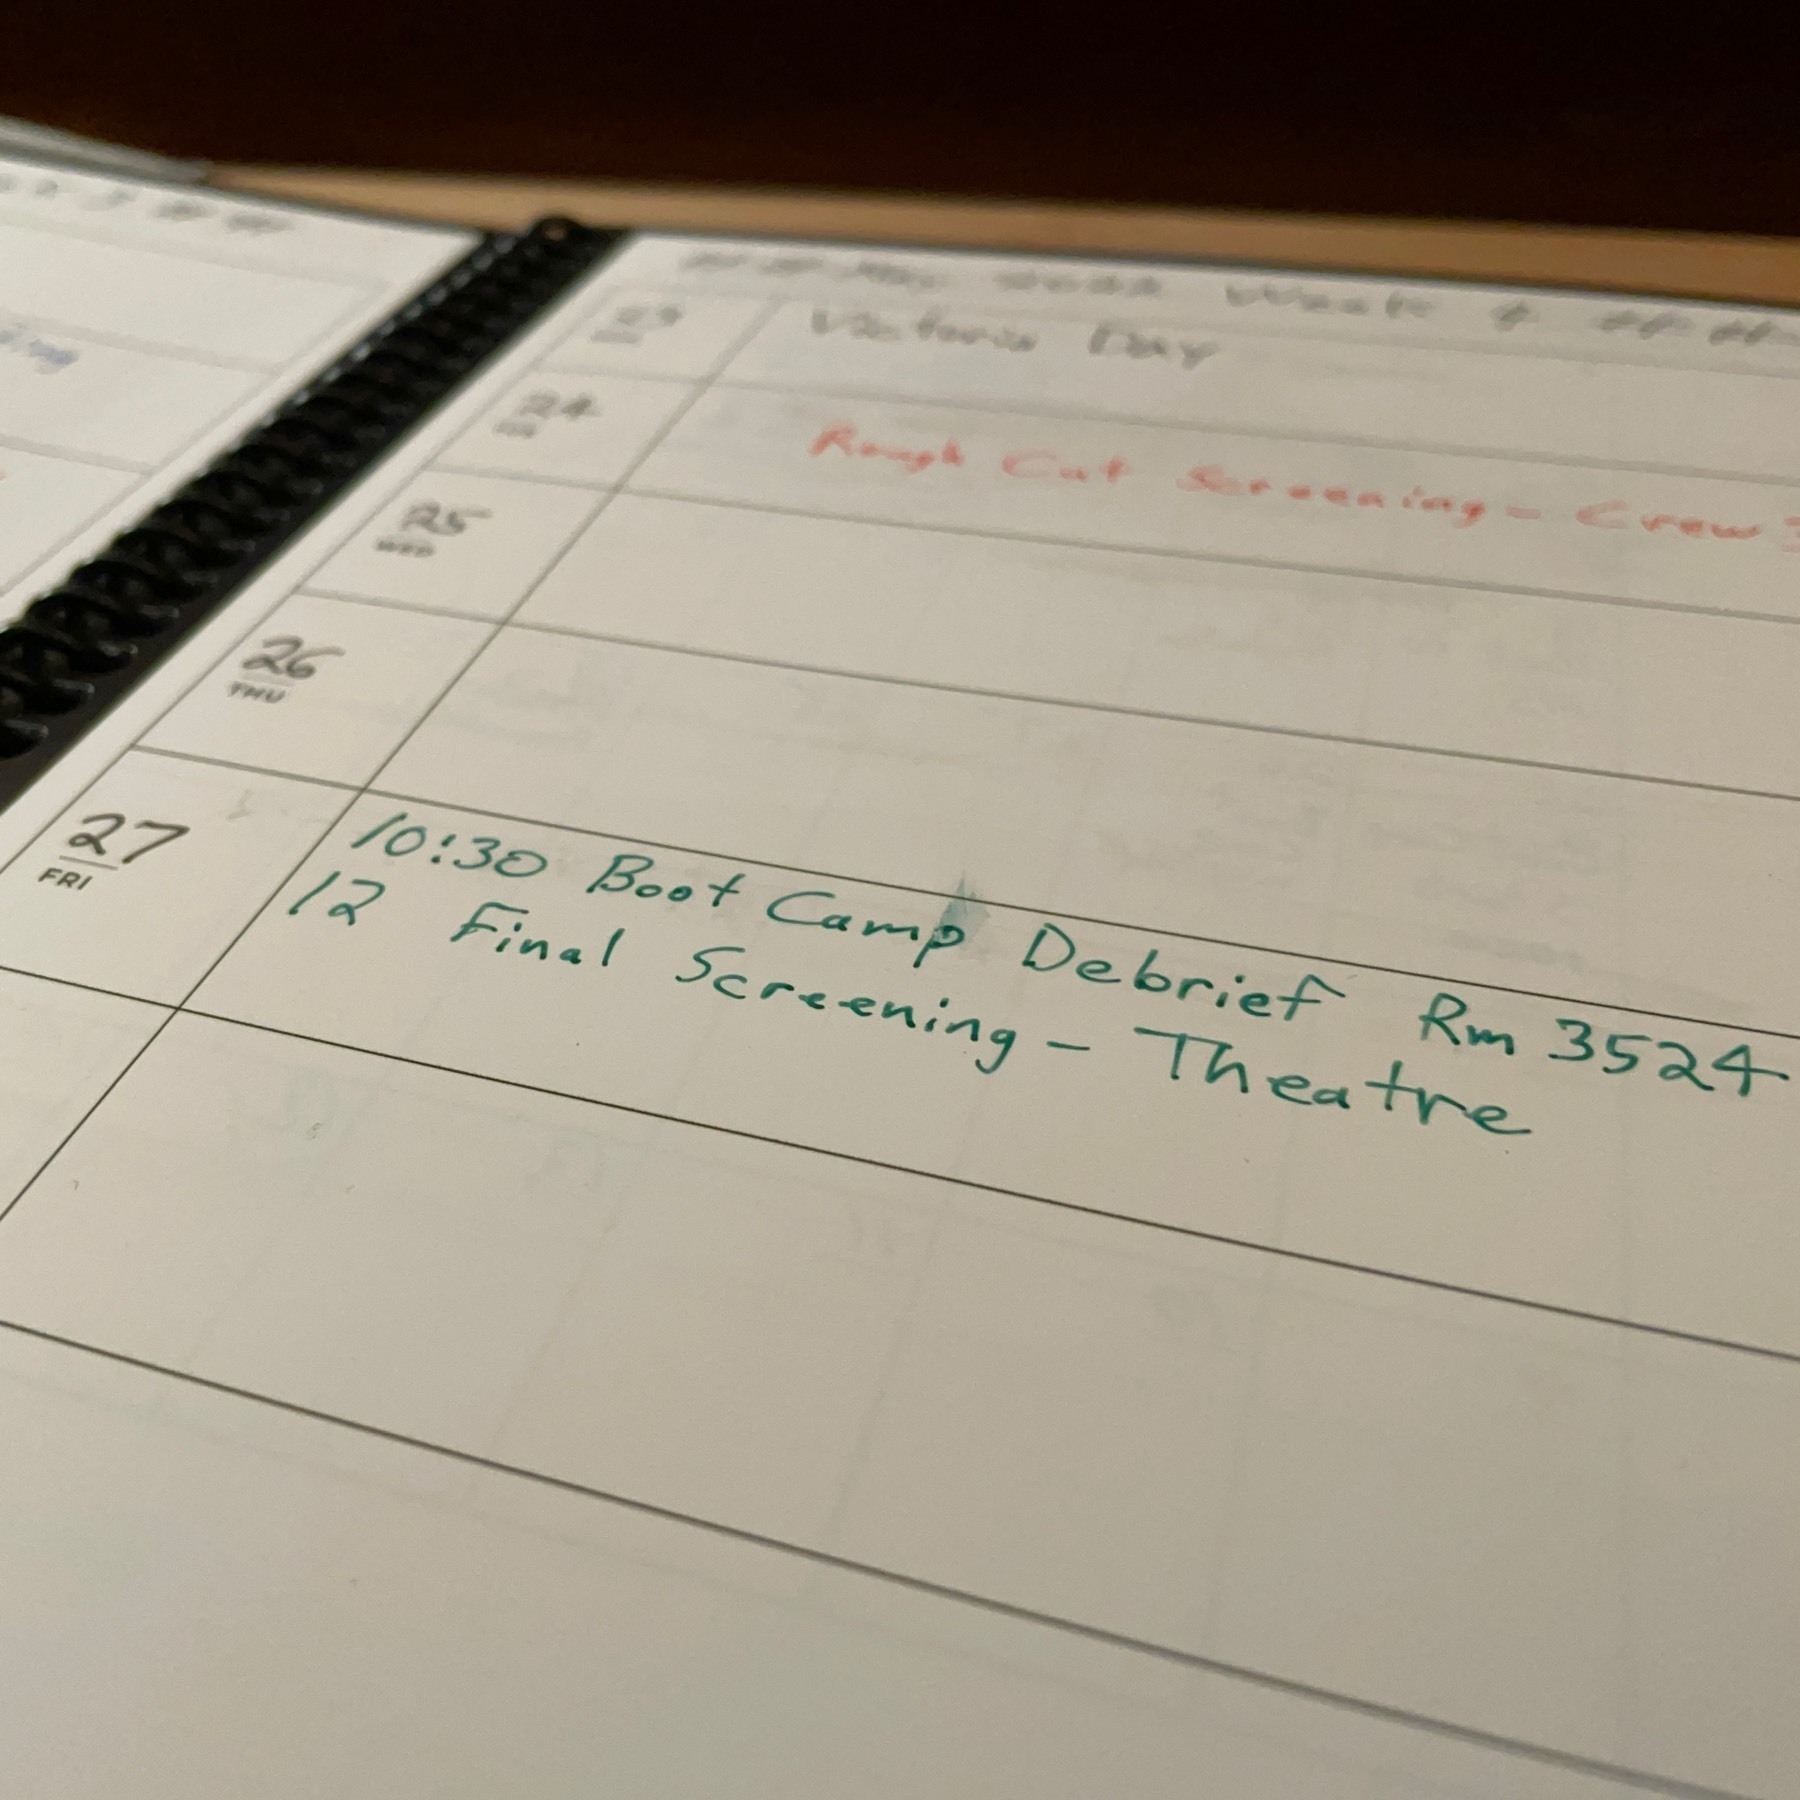 May 2022 Week 4
23
Victoria Day
24
Rough Cut Screening - Crew
25
WED
26
THU
27
FRI
10:30 Boot Camp Debrief Rm 3524
12 Final Screening - Theatre